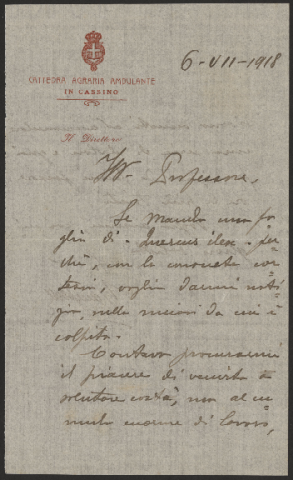 CATTEDRA AGRARIA AMBULANTE
IN CASSINO
Il Direttore
6-VII-1918
Ill. Professore,
Le mando una fo-
glia di "Quercus ilex" per-
chè, con la consueta cor-
tesia, voglia darmi noti-
zia, sulla ragioni da cui è
colpita.
Contavo procurarmi
il piacere di venirla a
salutare costà, ma al cu-
mulo enorme di lavoro,